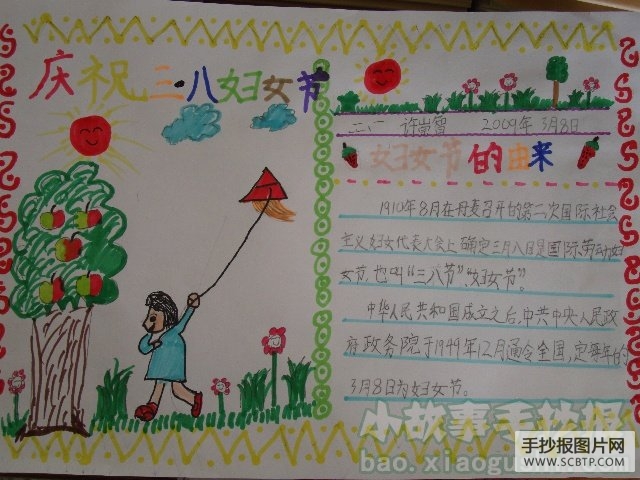 庆祝三·八妇女节
二、二 许 2009年3月8日
妇女节的由来
1910年8月在丹麦召开的第二次国际社会
主义妇女代表大会上确定三月八日是国际劳动妇
女节，也叫“三八节”“妇女节”。
中华人民共和国成立之后，中共中央人民政
府政务院于1949年12月通令全国，定每年的
3月8日为妇女节。
小故事手抄报
bao.xiaogu
手抄报图片网
WWW.SCBTP.COM